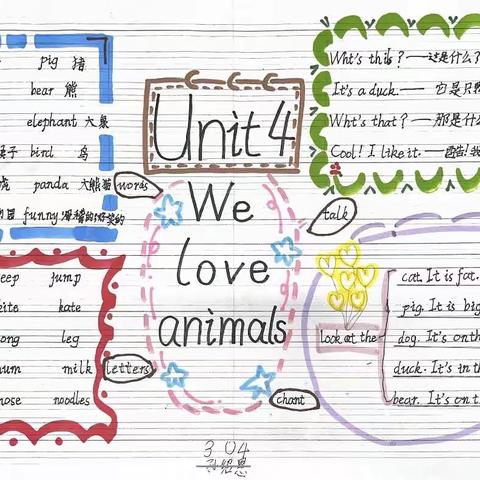 pig 猪
bear 熊
elephant 大象
bird 鸟
panda 大熊猫
funny 滑稽的;好笑的
words
Unit 4
We
love
animals
Wht's this? — 这是什么?
It's a duck. — 它是只
Wht's that? — 那是什
Cool! I like it. — 酷!我
talk
eep jump
ite kate
ong leg
um milk
nose noodles
letters
look at the
cat. It is fat.
pig. It is big
dog. It's on th
duck. It's in th
bear. It's on t
chant
304